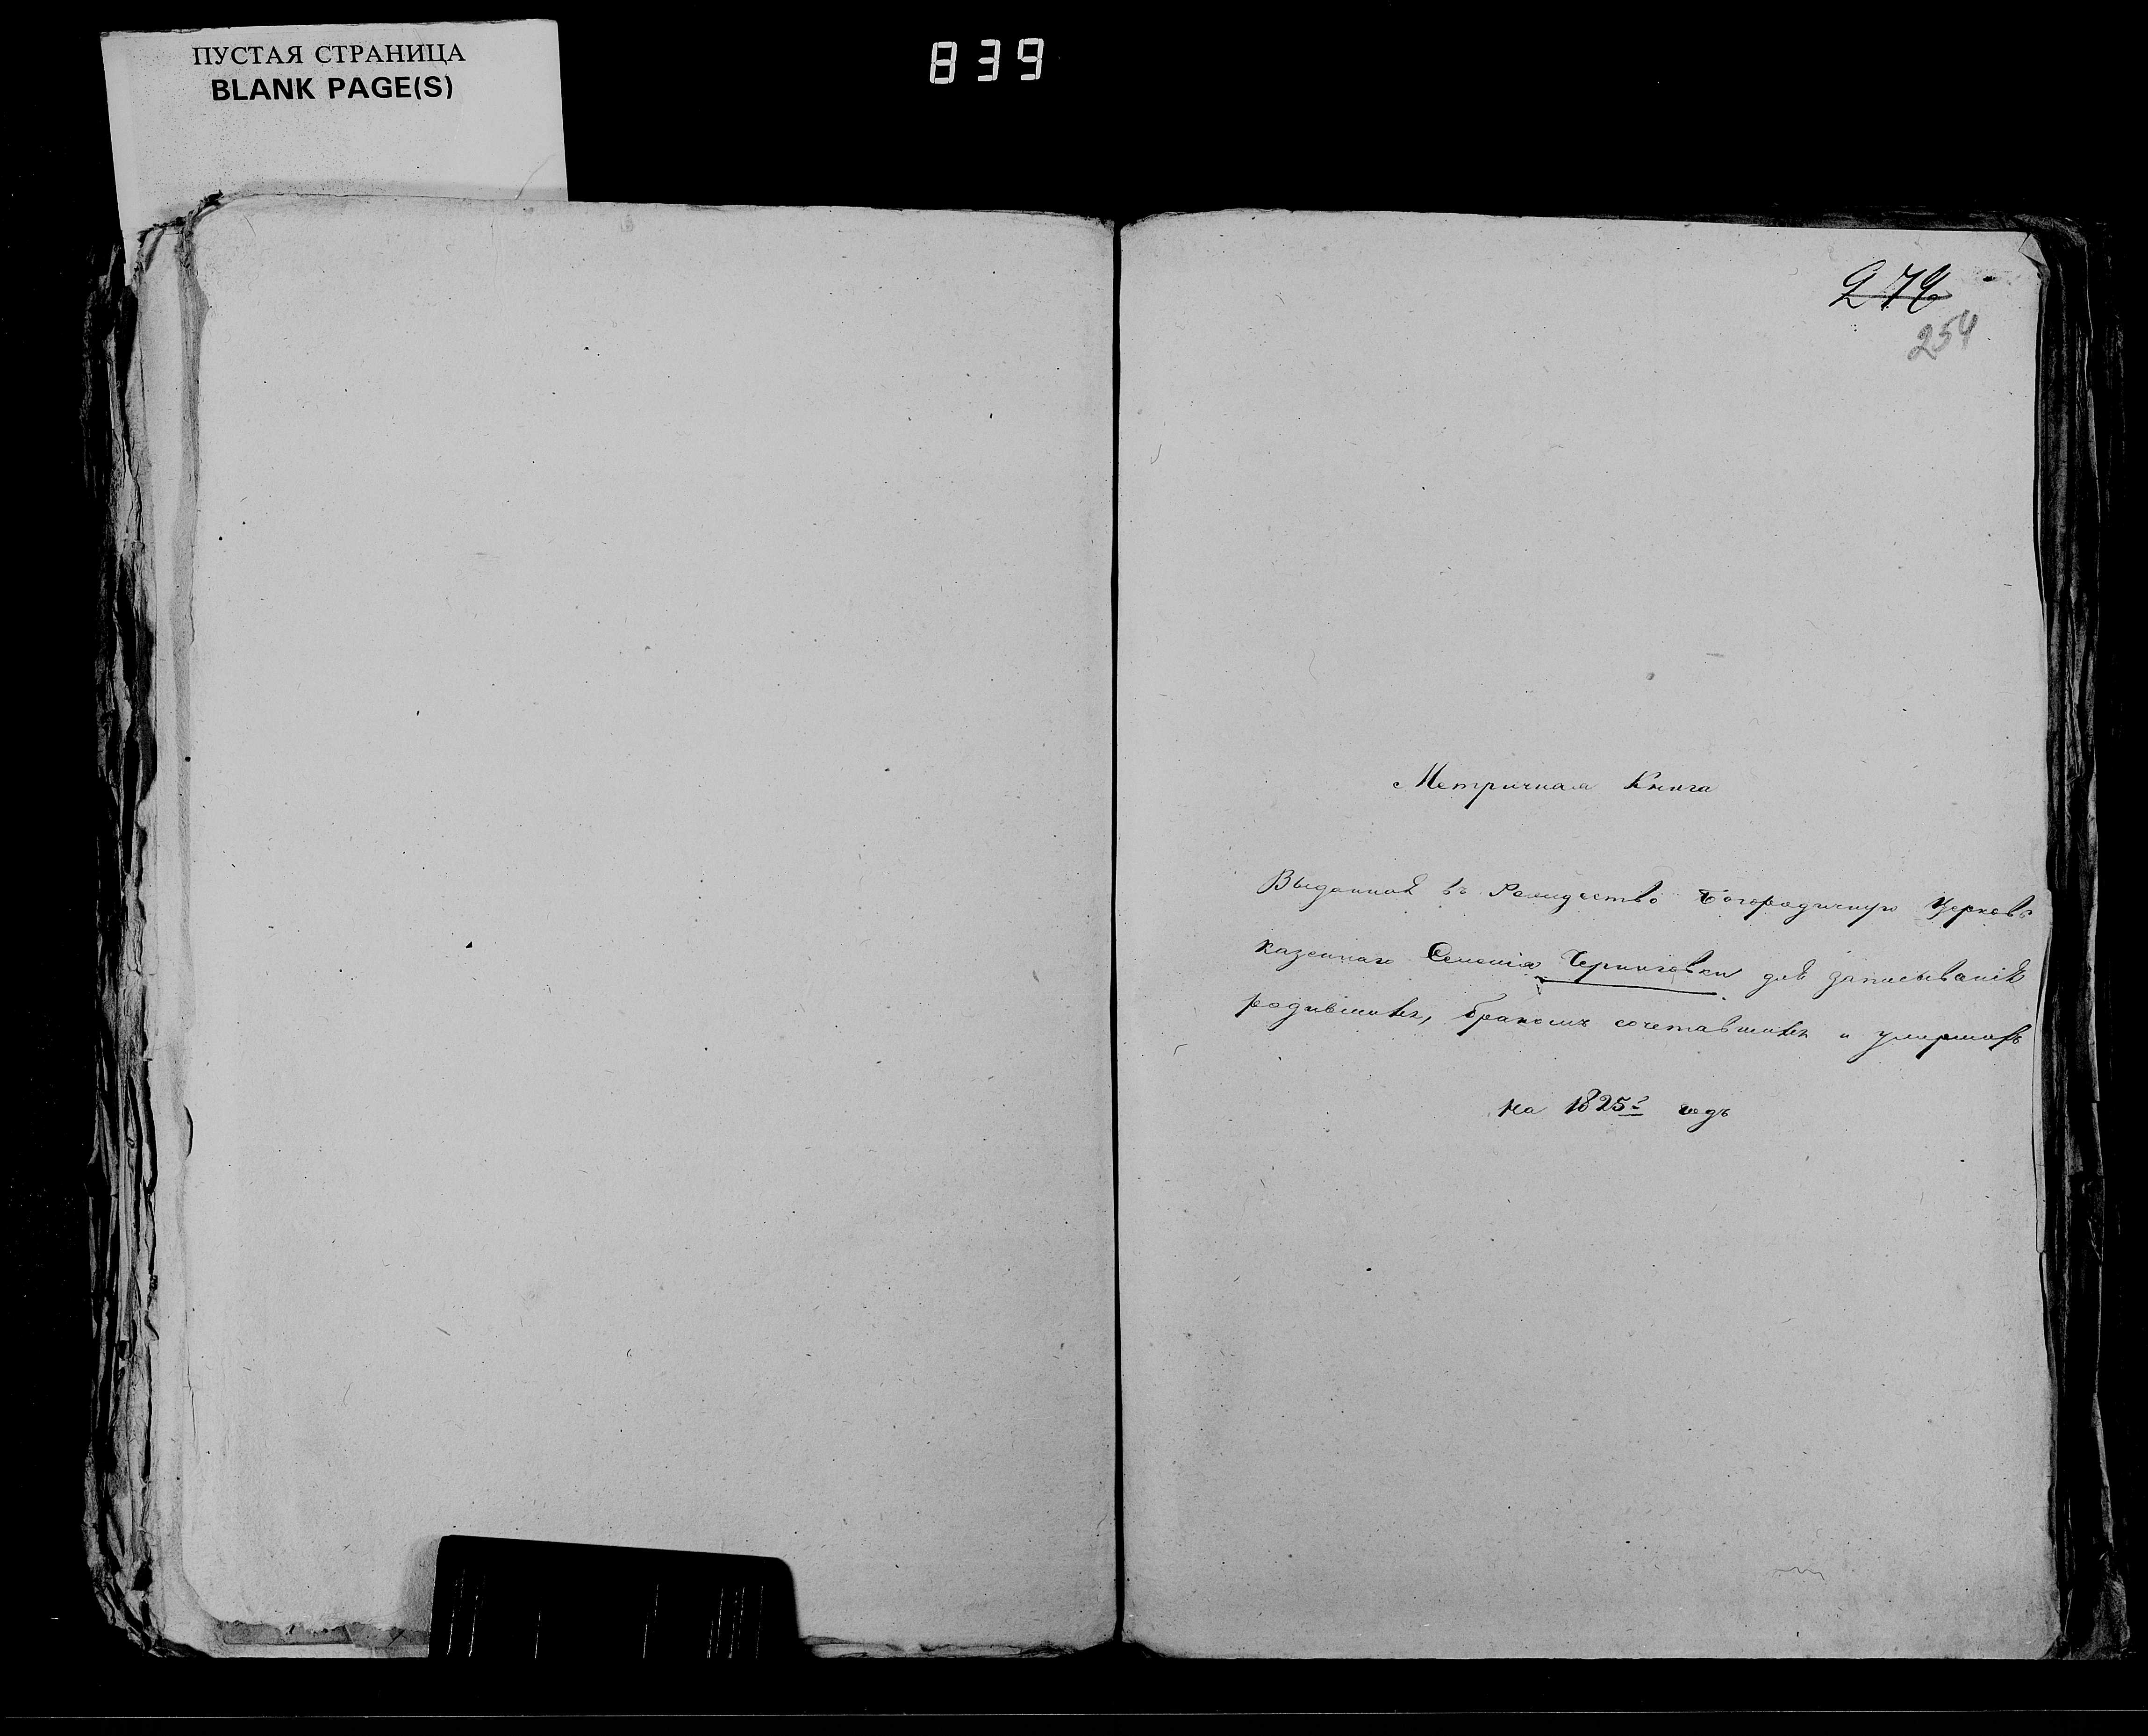 ПУСТАЯ СТРАНИЦА
BLANK PAGE(S)
839
254
Метричная Книга
Выданная въ Рождество Богородичную Церковь
казеннаго Селенія Черниговки для записыванія
родившихъ, бракомъ сочетавшихъ и умершихъ
на 1825й годъ